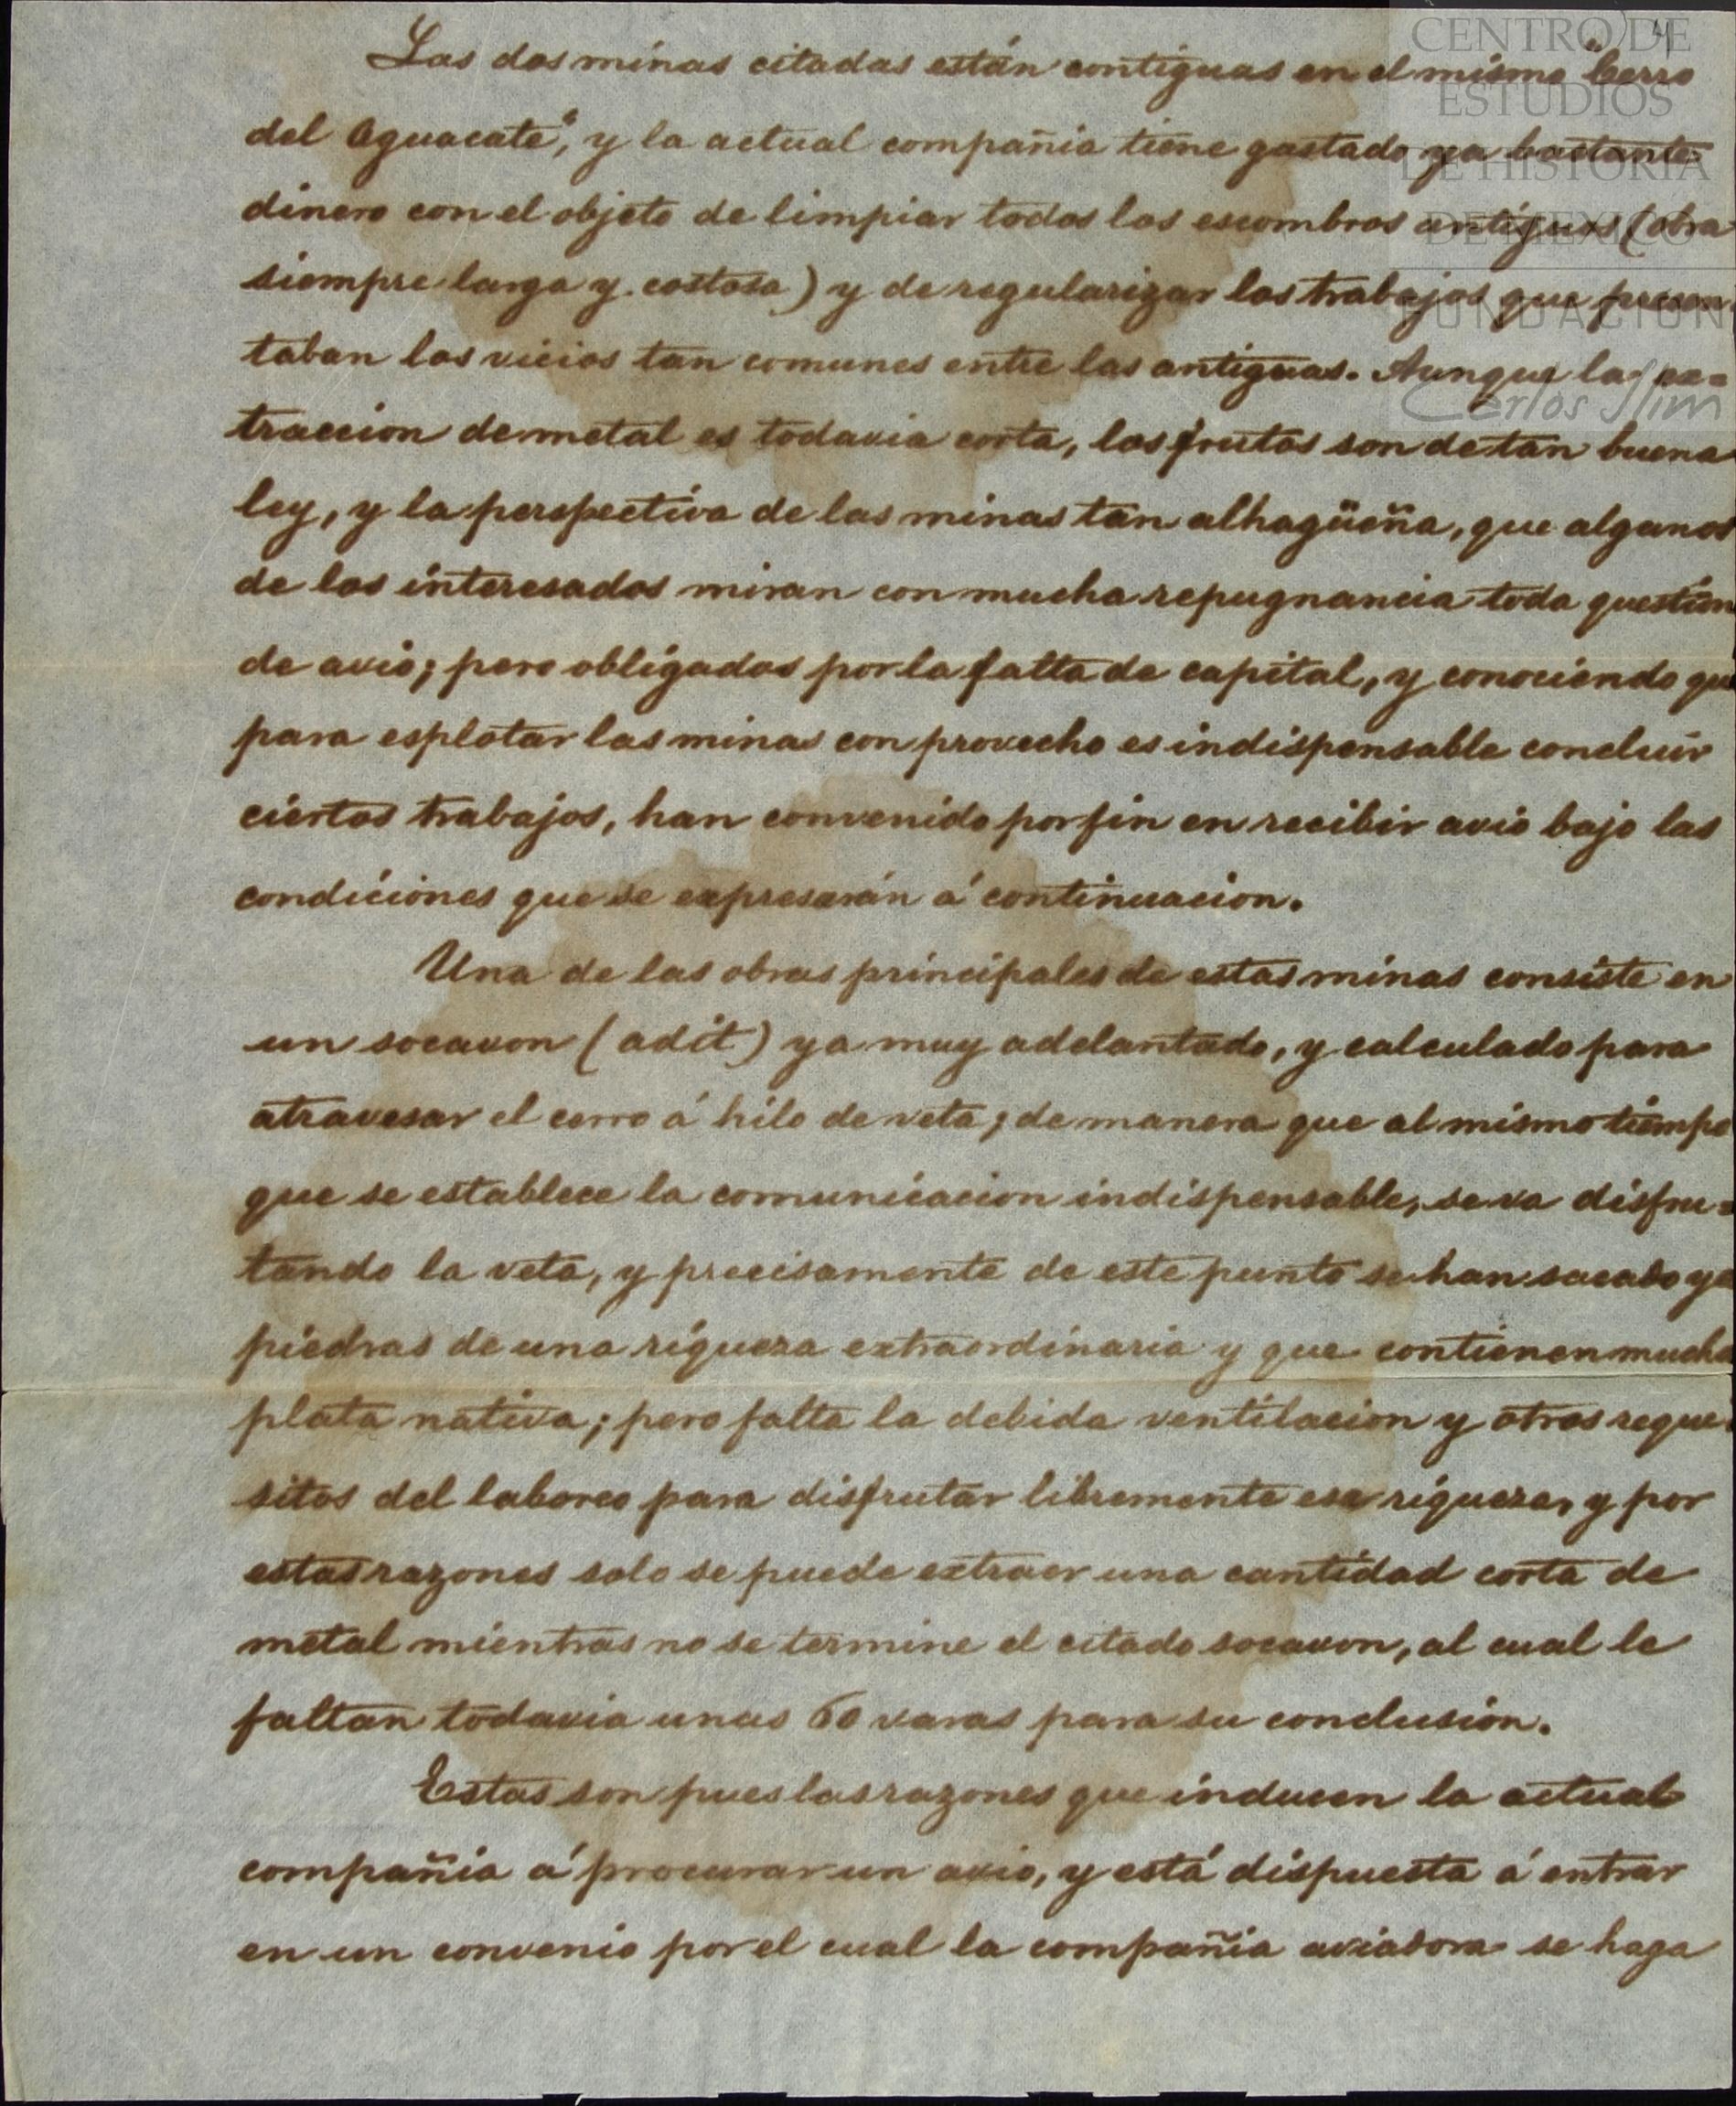 4
CENTRO DE
ESTUDIOS
DE HISTORIA
DE MEXICO
FUNDACION
Carlos Slim
Las dos minas citadas están contiguas en el mismo "Cerro
del Aguacate", y la actual compañia tiene gastado ya bastante
dinero con el objeto de limpiar todos los escombros antíguos (obra
siempre larga y costosa) y de regularizar los trabajos que presen
taban los vicios tan comunes entre las antiguas. Aunque la ex=
traccion de metal es todavia corta, los frutos son de tan buena
ley, y la perspectiva de las minas tan alhagüeña, que algunos
de los interesados miran con mucha repugnancia toda question
de avio; pero obligados por la falta de capital, y conociendo que
para esplotar las minas con provecho es indispensable concluir
ciertos trabajos, han convenido por fin en recibir avio bajo las
condiciones que se expresarán á continuacion.
Una de las obras principales de estas minas consiste en
un socavon (adit) ya muy adelantado, y calculado para
atravesar el cerro á hilo de veta; de manera que al mismo tiempo
que se establece la comunicacion indispensable, se va disfru=
tando la veta, y precisamente de este punto se han sacado ya
piedras de una riqueza extraordinaria y que contienen mucha
plata nativa; pero falta la debida ventilacion y otros requi
sitos del laboreo para disfrutar libremente esa riqueza, y por
estas razones solo se puede extraer una cantidad corta de
metal mientras no se termine el citado socavon, al cual le
faltan todavia unas 60 varas para su conclusion.
Estas son pues las razones que inducen la actual
compañia á procurar un avio, y está dispuesta á entrar
en un convenio por el cual la compañia aviadora se haga